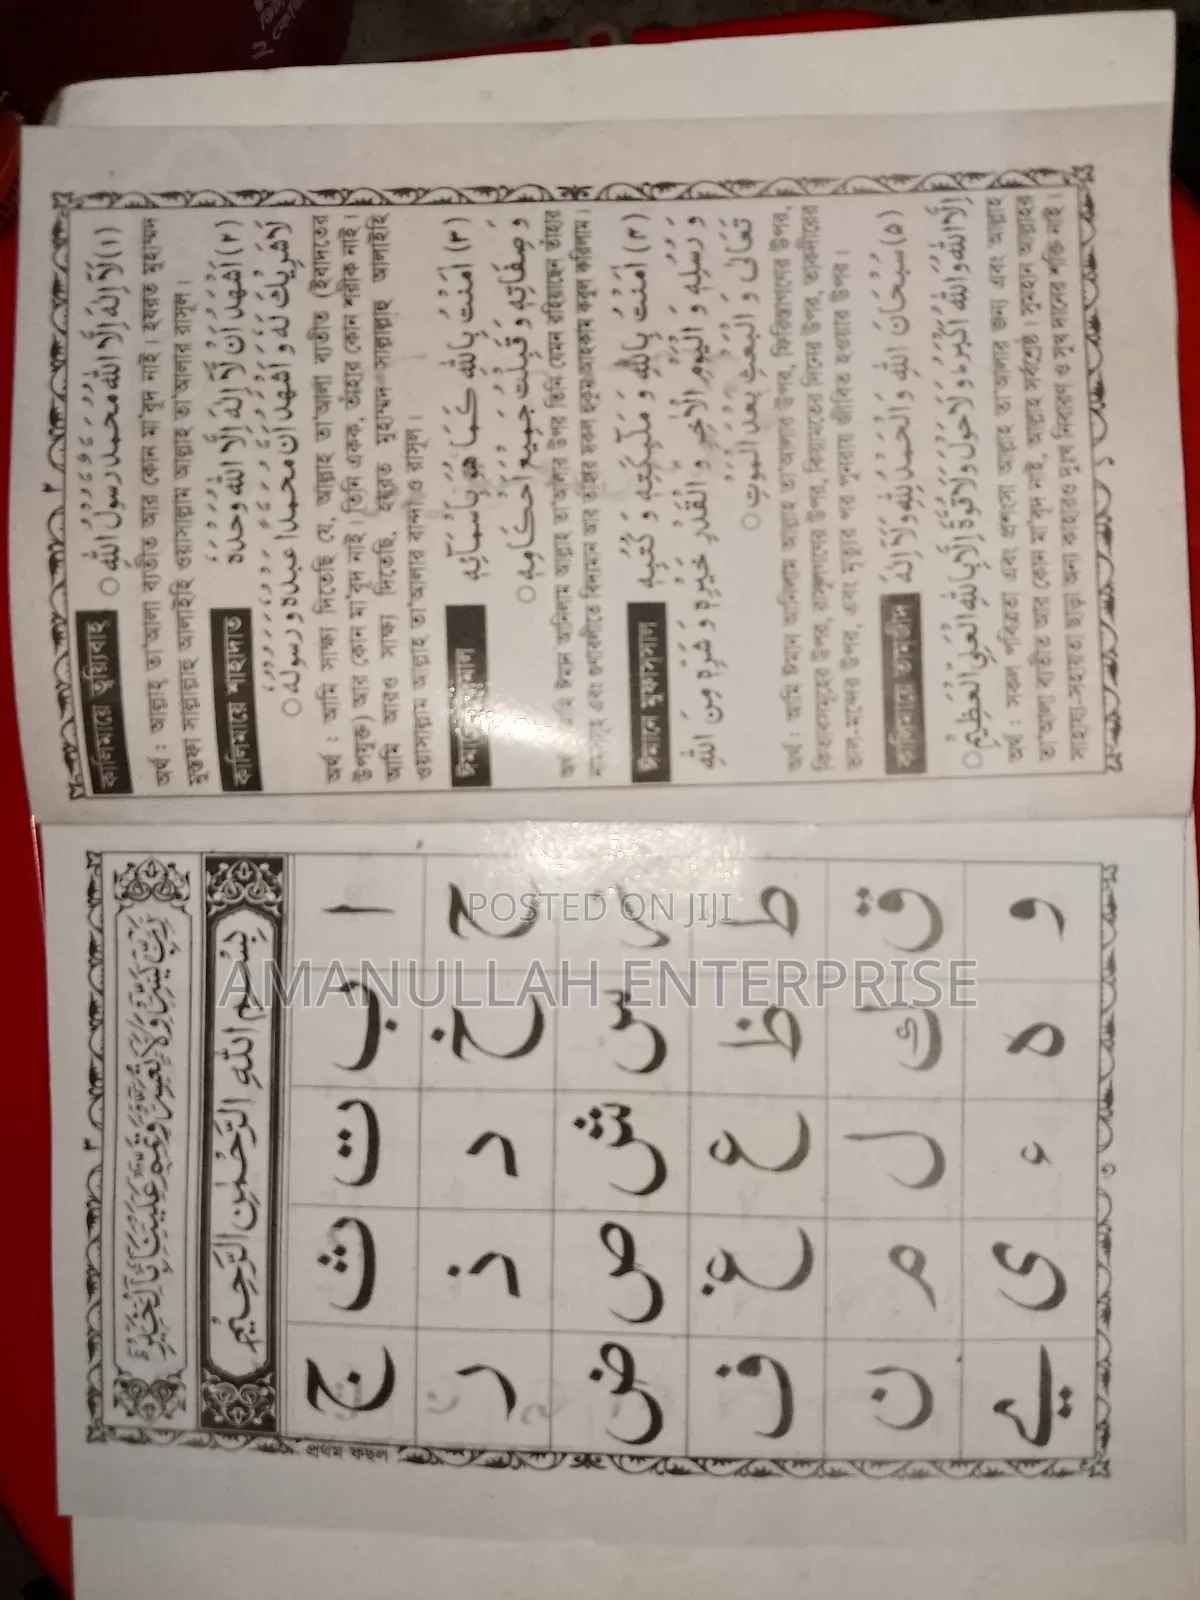 رَبِّ يَسِّرْ وَلَا تُعَسِّرْ وَتَمِّمْ عَلَيْنَا بِالْخَيْرِ
بِسْمِ اللهِ الرَّحْمٰنِ الرَّحِيْمِ
ا ب ت ث ج
ح خ د ذ ر
س ش ص ض
ط ظ ع غ ف
ق ك ل م ن
و ه ء ي ے
প্রথম ছবক
৩
২
কালিমায়ে তাইয়্যিবাহ
(١) لَآ اِلٰهَ اِلَّا اللهُ مُحَمَّدٌ رَّسُوْلُ اللهِ ○
অর্থ : আল্লাহ্ তা'আলা ব্যতীত আর কোন মা'বুদ নাই। হযরত মুহাম্মদ
মুস্তফা সাল্লাল্লাহু আলাইহি ওয়াসাল্লাম আল্লাহ তা'আলার রাসূল।
কালিমায়ে শাহাদাত
(٢) اَشْهَدُ اَنْ لَّآ اِلٰهَ اِلَّا اللهُ وَحْدَهٗ
لَا شَرِيْكَ لَهٗ وَ اَشْهَدُ اَنَّ مُحَمَّدًا عَبْدُهٗ وَ رَسُوْلُهٗ ○
অর্থ : আমি সাক্ষ্য দিতেছি যে, আল্লাহ তা'আলা ব্যতীত (ইবাদতের
উপযুক্ত) আর কোন মা'বুদ নাই। তিনি একক, তাঁহার কোন শরীক নাই।
আমি আরও সাক্ষ্য দিতেছি, হযরত মুহাম্মদ সাল্লাল্লাহু আলাইহি
ওয়াসাল্লাম আল্লাহ তা'আলার বান্দা ও রাসূল।
(٣) اٰمَنْتُ بِاللهِ كَمَا هُوَ بِاَسْمَآئِهٖ
وَ صِفَاتِهٖ وَ قَبِلْتُ جَمِيْعَ اَحْكَامِهٖ ○
আমি ঈমান আনিলাম আল্লাহ তা'আলার উপর তিনি যেমন রহিয়াছেন তাঁহার
এবং গুণাবলীতে বিদ্যমান আর তাঁহার সকল হুকুম-আহকাম কবুল করিলাম।
ঈমানে মুফাস্সাল
(٤) اٰمَنْتُ بِاللهِ وَ مَلٰٓئِكَتِهٖ وَ كُتُبِهٖ
وَ رُسُلِهٖ وَ الْيَوْمِ الْاٰخِرِ وَ الْقَدْرِ خَيْرِهٖ وَ شَرِّهٖ مِنَ اللهِ
تَعَالٰى وَ الْبَعْثِ بَعْدَ الْمَوْتِ ○
অর্থ : আমি ঈমান আনিলাম আল্লাহ তা'আলার উপর, ফিরিশতাগণের উপর,
কিতাবসমূহের উপর, রসূলগণের উপর, কিয়ামতের দিনের উপর, তাকদীরের
ভাল-মন্দের উপর, এবং মৃত্যুর পর পুনরায় জীবিত হওয়ার উপর।
কালিমায়ে তামজীদ
(٥) سُبْحَانَ اللهِ وَ الْحَمْدُ لِلّٰهِ وَ لَآ اِلٰهَ
اِلَّا اللهُ وَ اللهُ اَكْبَرُ وَ لَا حَوْلَ وَ لَا قُوَّةَ اِلَّا بِاللهِ الْعَلِيِّ الْعَظِيْمِ ○
অর্থ : সকল পবিত্রতা এবং প্রশংসা আল্লাহ তা'আলার জন্য এবং আল্লাহ
তা'আলা ব্যতীত আর কোন মা'বুদ নাই, আল্লাহ সর্বশ্রেষ্ঠ। সুমহান আল্লাহর
সাহায্য-সহায়তা ছাড়া অন্য কাহারও দুঃখ নিবারক ও সুখ দানের শক্তি নাই।
POSTED ON JIJI
AMANULLAH ENTERPRISE